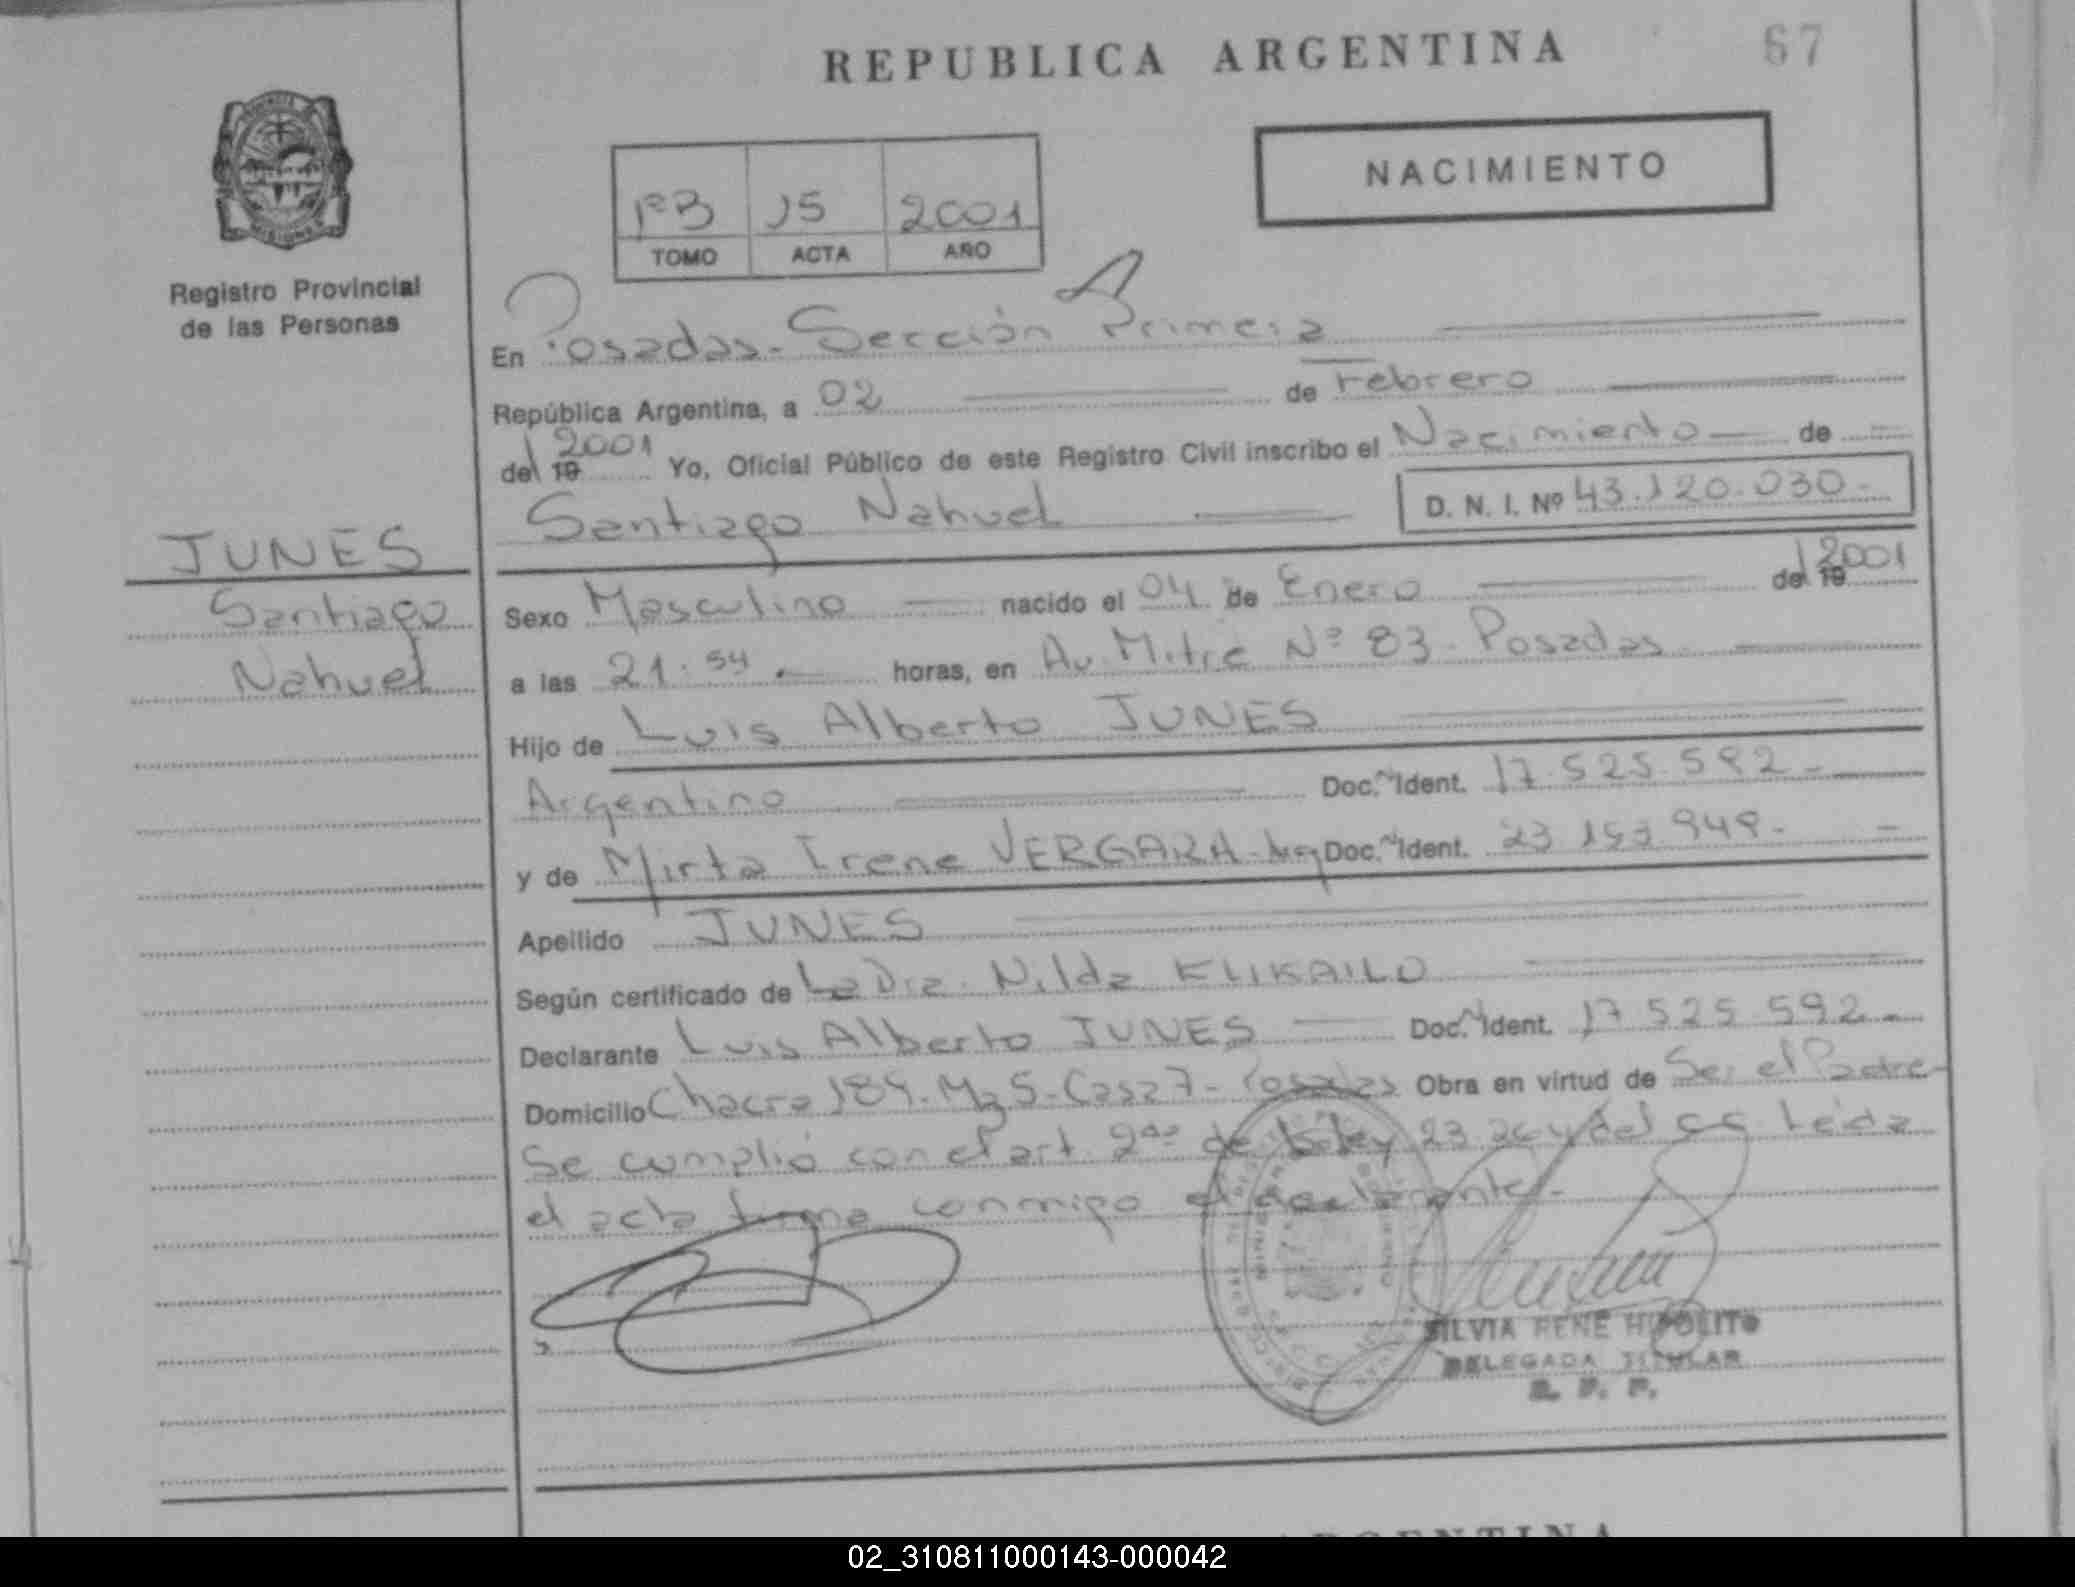 REPUBLICA ARGENTINA
67
NACIMIENTO
1ºB 15 2001
TOMO ACTA AÑO
MISIONES
Registro Provincial
de las Personas
En Posadas - Sección Primera
República Argentina, a 02 de Febrero
del 19 2001 Yo, Oficial Público de este Registro Civil inscribo el Nacimiento de
Santiago Nahuel D. N. I. Nº 43.120.030.-
JUNES
Santiago
Nahuel
Sexo Masculino nacido el 04 de Enero del 19 2001
a las 21.54 horas, en Av. Mitre Nº 83 - Posadas
Hijo de Luis Alberto JUNES
Argentino Doc. N Ident. 17.525.592.-
y de Mirta Irene VERGARA - Arg Doc. N Ident. 23.153.949.-
Apellido JUNES
Según certificado de La Dra. Nilda KLIKAILO
Declarante Luis Alberto JUNES Doc. N Ident. 17.525.592.-
Domicilio Chacra 189 - Mz 5 - Casa 7 - Posadas Obra en virtud de Ser el Padre-
Se cumplió con el art. 2do de la ley 23.264 y del CC Leída
el acta firma conmigo el declarante-
SILVIA RENE HIPOLITO
DELEGADA TITULAR
R. P. P.
ARGENTINA
02_310811000143-000042